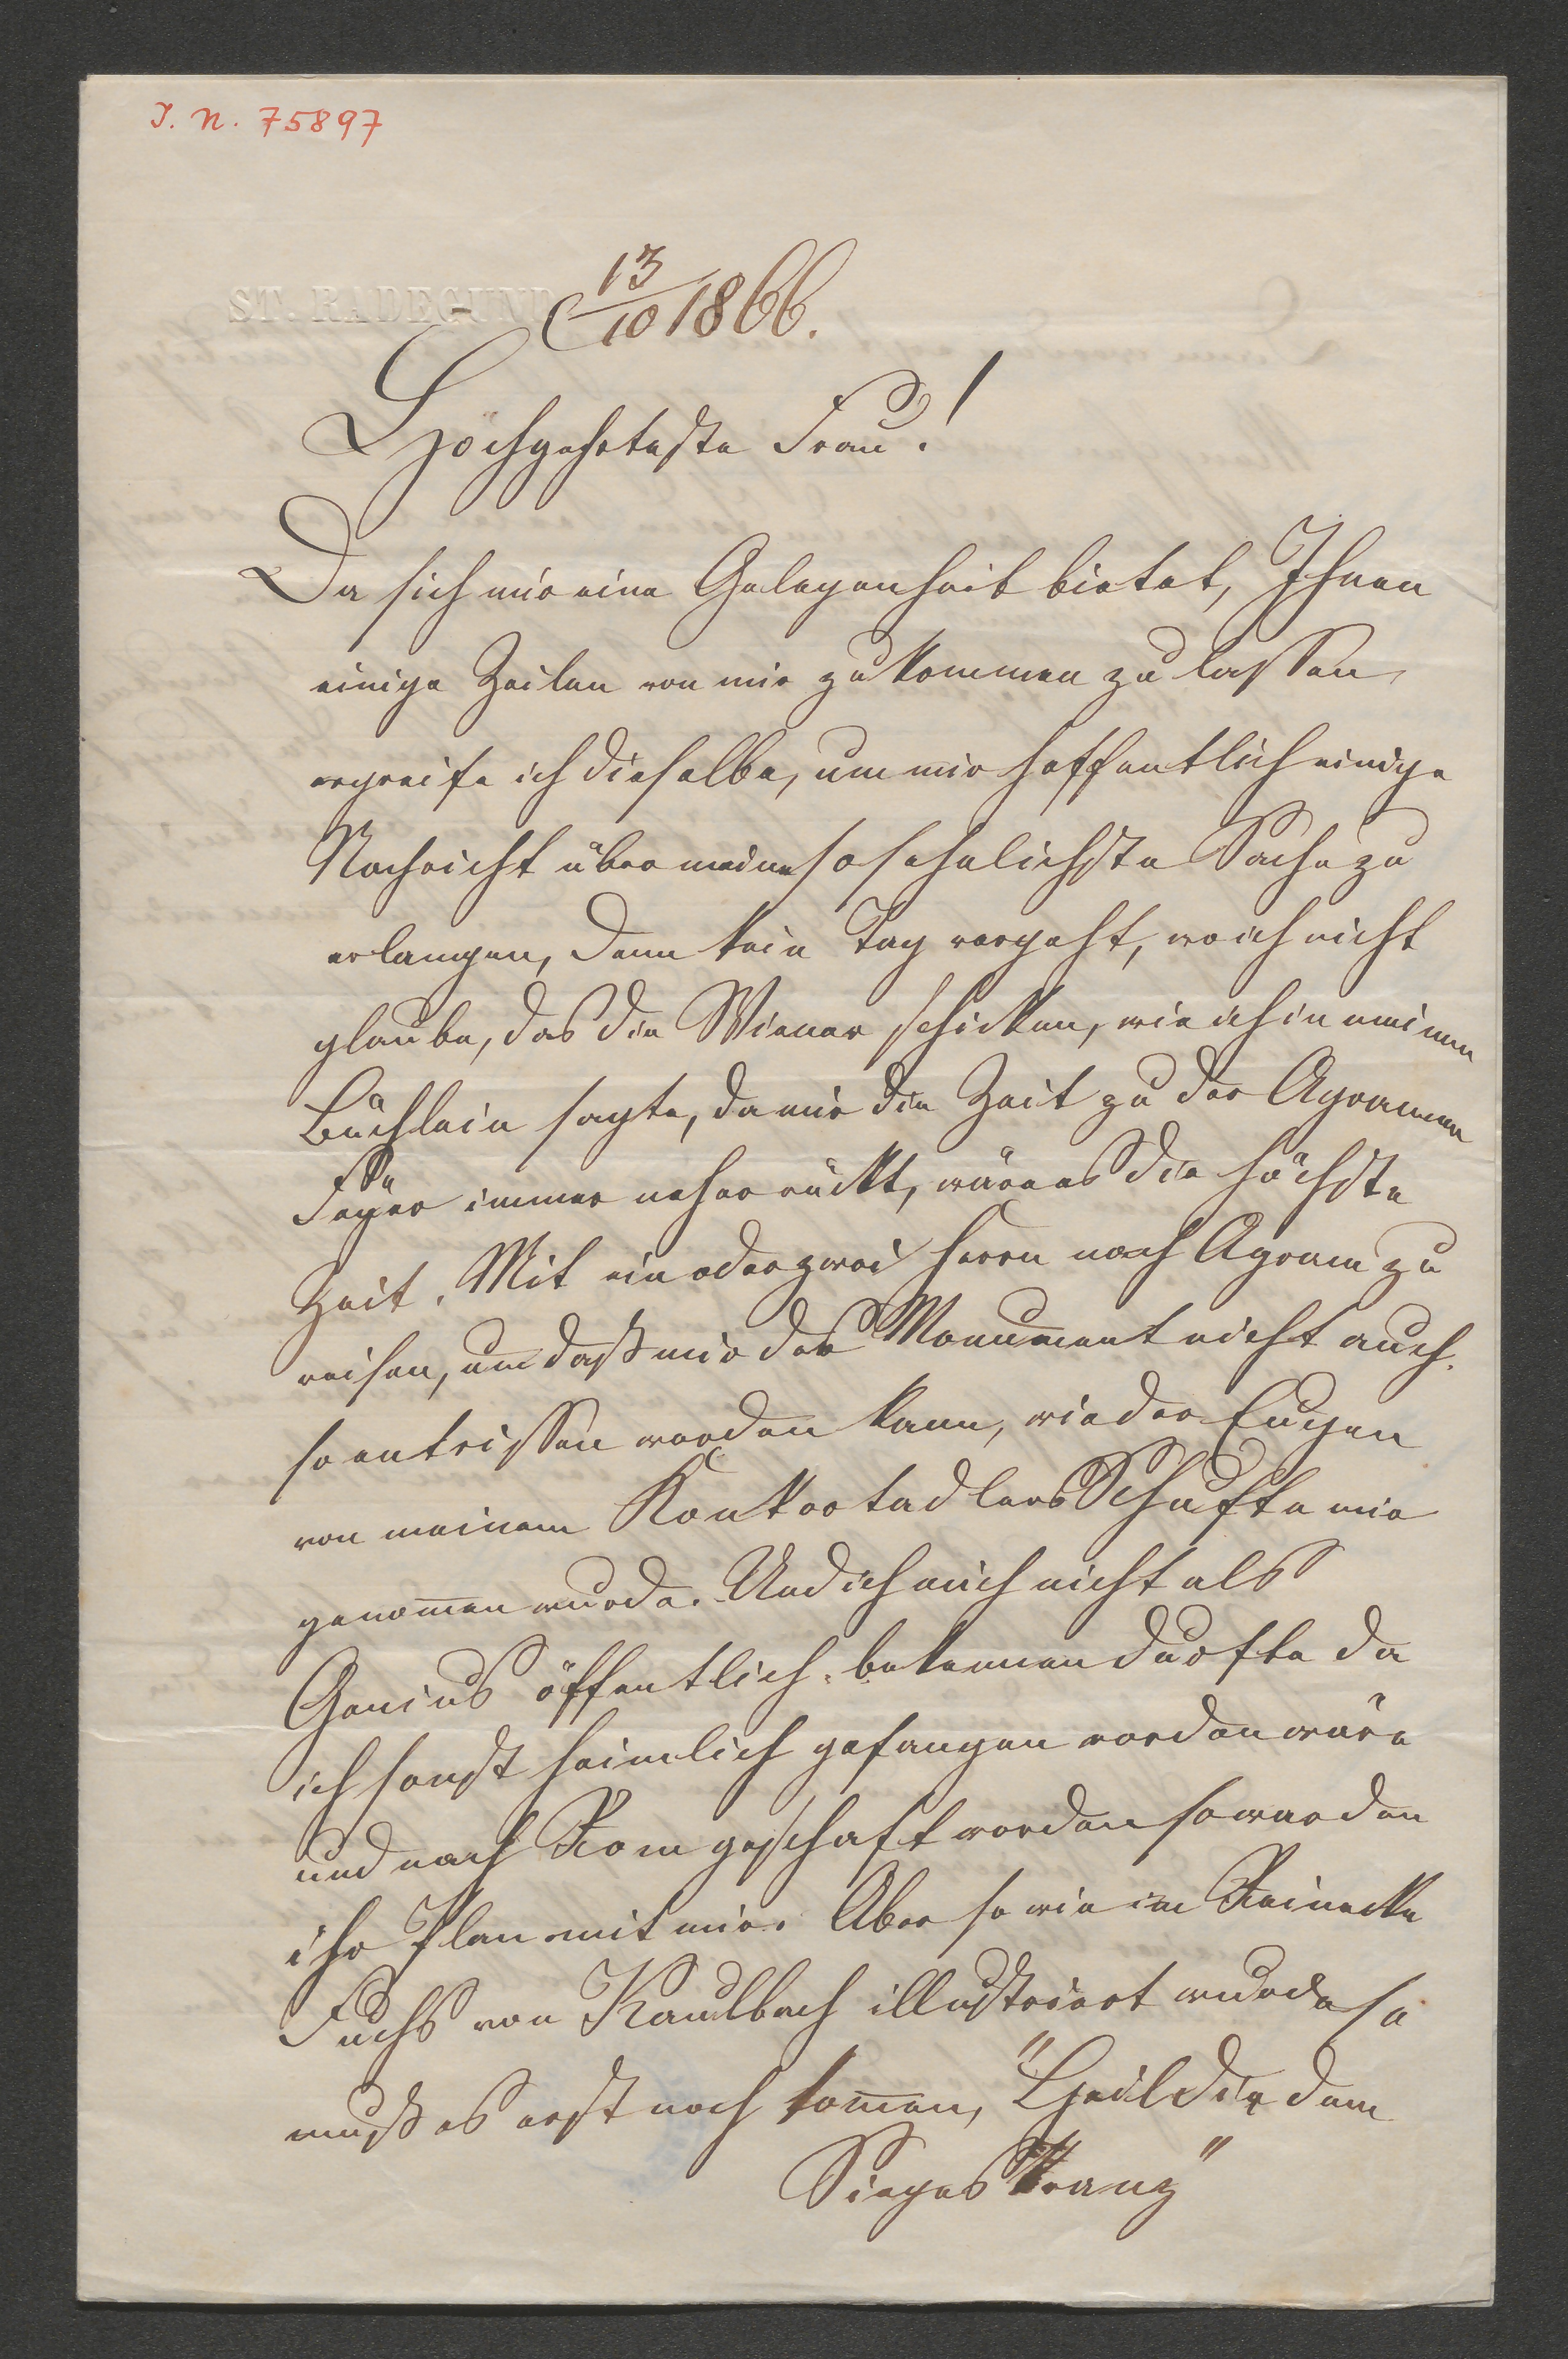 I. N. 75897
ST. RADEGUND
13/10 1866.
Hochgehrteste Frau!
Da sich mir eine Gelegenheit bietet, Ihnen
einige Zeilen von mir zukommen zu lassen,
ergreife ich dieselbe, um mir hoffentlich einige
Nachricht über meine so sehnlichste Sache zu
erlangen, denn kein Tag vergeht, wo ich nicht
glaube, das die Wiener schicken, wie ich in meinem
Büchlein sagte, da mir die Zeit zu der Agramer
Feyer immer neher rückt, wäre es die höchste
Zeit. Mit ein oder zwei Herrn nach Agram zu
reisen, um daß mir das Monument nicht auch
so entrissen werden kann, wie der Eugen
von meinem Schufte mir
genomen wurde. Und ich mich nicht als
Genius öffentlich bekennen durfte da
ich sonst heimlich gefangen worden wäre
und nach Rom geschaft worden so war den
ihr Plan mit mir. Aber so wie im Reinecke
Fuchs von Kaulbach illustriert wurde so
muß es erst noch komen, "Heil dir dem
Sieges Kranz"